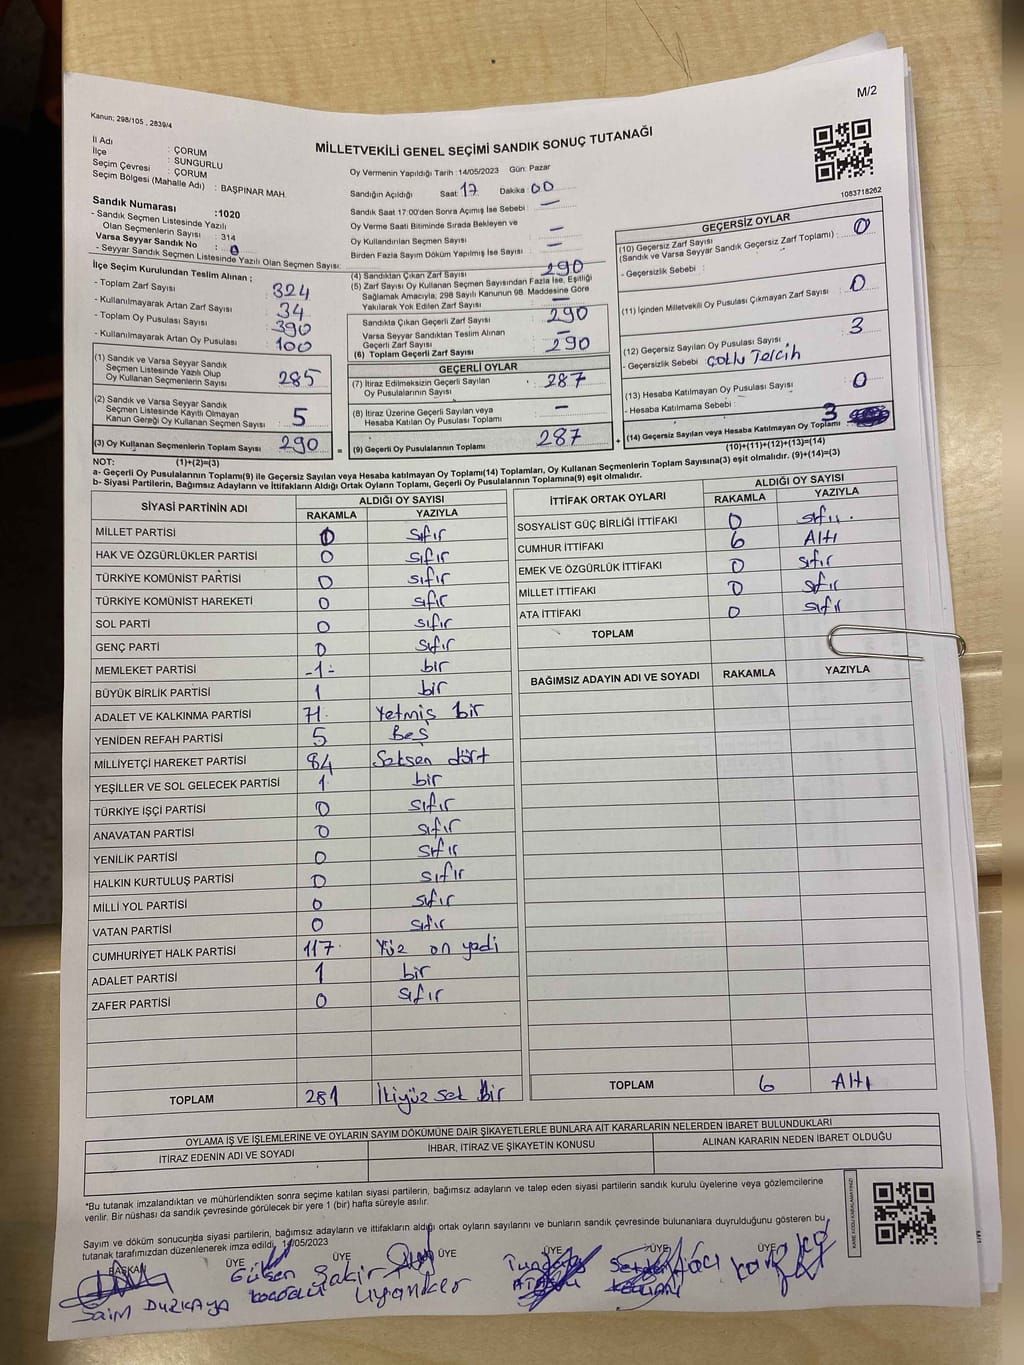 M/2
Kanun; 298/105 , 2839/4
MİLLETVEKİLİ GENEL SEÇİMİ SANDIK SONUÇ TUTANAĞI
1083718262
İl Adı : ÇORUM
İlçe : SUNGURLU
Seçim Çevresi : ÇORUM
Seçim Bölgesi (Mahalle Adı) : BAŞPINAR MAH.
Sandık Numarası :1020
- Sandık Seçmen Listesinde Yazılı
Olan Seçmenlerin Sayısı : 314
Varsa Seyyar Sandık No : 0
- Seyyar Sandık Seçmen Listesinde Yazılı Olan Seçmen Sayısı:
İlçe Seçim Kurulundan Teslim Alınan ;
- Toplam Zarf Sayısı : 324
- Kullanılmayarak Artan Zarf Sayısı : 34
- Toplam Oy Pusulası Sayısı : 390
- Kullanılmayarak Artan Oy Pusulası : 100
(1) Sandık ve Varsa Seyyar Sandık
Seçmen Listesinde Yazılı Olup
Oy Kullanan Seçmenlerin Sayısı : 285
(2) Sandık ve Varsa Seyyar Sandık
Seçmen Listesinde Kayıtlı Olmayan
Kanun Gereği Oy Kullanan Seçmen Sayısı : 5
(3) Oy Kullanan Seçmenlerin Toplam Sayısı : 290
(1)+(2)=(3)
Oy Vermenin Yapıldığı Tarih : 14/05/2023 Gün: Pazar
Sandığın Açıldığı Saat: 17 Dakika : 00
Sandık Saat 17:00'den Sonra Açımış İse Sebebi : —
Oy Verme Saati Bitiminde Sırada Bekleyen ve
Oy Kullandırılan Seçmen Sayısı : —
Birden Fazla Sayım Döküm Yapılmış İse Sayısı : —
(4) Sandıktan Çıkan Zarf Sayısı : 290
(5) Zarf Sayısı Oy Kullanan Seçmen Sayısından Fazla İse, Eşitliği
Sağlamak Amacıyla, 298 Sayılı Kanunun 98. Maddesine Göre
Yakılarak Yok Edilen Zarf Sayısı : —
Sandıkta Çıkan Geçerli Zarf Sayısı : 290
Varsa Seyyar Sandıktan Teslim Alınan
Geçerli Zarf Sayısı : —
(6) Toplam Geçerli Zarf Sayısı : 290
GEÇERLİ OYLAR
(7) İtiraz Edilmeksizin Geçerli Sayılan
Oy Pusulalarının Sayısı : 287
(8) İtiraz Üzerine Geçerli Sayılan veya
Hesaba Katılan Oy Pusulası Toplamı : —
= (9) Geçerli Oy Pusulalarının Toplamı : 287 +
GEÇERSİZ OYLAR
(10) Geçersiz Zarf Sayısı
(Sandık ve Varsa Seyyar Sandık Geçersiz Zarf Toplamı) : 0
- Geçersizlik Sebebi :
(11) İçinden Milletvekili Oy Pusulası Çıkmayan Zarf Sayısı : 0
(12) Geçersiz Sayılan Oy Pusulası Sayısı : 3
- Geçersizlik Sebebi : Çoklu Tercih
(13) Hesaba Katılmayan Oy Pusulası Sayısı : 0
- Hesaba Katılmama Sebebi :
(14) Geçersiz Sayılan veya Hesaba Katılmayan Oy Toplamı : 3
(10)+(11)+(12)+(13)=(14)
NOT:
a- Geçerli Oy Pusulalarının Toplamı(9) ile Geçersiz Sayılan veya Hesaba katılmayan Oy Toplamı(14) Toplamları, Oy Kullanan Seçmenlerin Toplam Sayısına(3) eşit olmalıdır. (9)+(14)=(3)
b- Siyasi Partilerin, Bağımsız Adayların ve İttifakların Aldığı Ortak Oyların Toplamı, Geçerli Oy Pusulalarının Toplamına(9) eşit olmalıdır.
SİYASİ PARTİNİN ADI ALDIĞI OY SAYISI
RAKAMLA YAZIYLA
MİLLET PARTİSİ 0 sıfır
HAK VE ÖZGÜRLÜKLER PARTİSİ 0 sıfır
TÜRKİYE KOMÜNİST PARTİSİ 0 sıfır
TÜRKİYE KOMÜNİST HAREKETİ 0 sıfır
SOL PARTİ 0 sıfır
GENÇ PARTİ 0 sıfır
MEMLEKET PARTİSİ -1- bir
BÜYÜK BİRLİK PARTİSİ 1 bir
ADALET VE KALKINMA PARTİSİ 71 Yetmiş bir
YENİDEN REFAH PARTİSİ 5 Beş
MİLLİYETÇİ HAREKET PARTİSİ 84 Seksen dört
YEŞİLLER VE SOL GELECEK PARTİSİ 1 bir
TÜRKİYE İŞÇİ PARTİSİ 0 sıfır
ANAVATAN PARTİSİ 0 sıfır
YENİLİK PARTİSİ 0 sıfır
HALKIN KURTULUŞ PARTİSİ 0 sıfır
MİLLİ YOL PARTİSİ 0 sıfır
VATAN PARTİSİ 0 sıfır
CUMHURİYET HALK PARTİSİ 117 Yüz on yedi
ADALET PARTİSİ 1 bir
ZAFER PARTİSİ 0 sıfır
TOPLAM 281 İkiyüz sek bir
İTTİFAK ORTAK OYLARI ALDIĞI OY SAYISI
RAKAMLA YAZIYLA
SOSYALİST GÜÇ BİRLİĞİ İTTİFAKI 0 sıfır
CUMHUR İTTİFAKI 6 Altı
EMEK VE ÖZGÜRLÜK İTTİFAKI 0 sıfır
MİLLET İTTİFAKI 0 sıfır
ATA İTTİFAKI 0 sıfır
TOPLAM
BAĞIMSIZ ADAYIN ADI VE SOYADI RAKAMLA YAZIYLA
TOPLAM 6 Altı
OYLAMA İŞ VE İŞLEMLERİNE VE OYLARIN SAYIM DÖKÜMÜNE DAİR ŞİKAYETLERLE BUNLARA AİT KARARLARIN NELERDEN İBARET BULUNDUKLARI
İTİRAZ EDENİN ADI VE SOYADI İHBAR, İTİRAZ VE ŞİKAYETİN KONUSU ALINAN KARARIN NEDEN İBARET OLDUĞU
*Bu tutanak imzalandıktan ve mühürlendikten sonra seçime katılan siyasi partilerin, bağımsız adayların ve talep eden siyasi partilerin sandık kurulu üyelerine veya gözlemcilerine
verilir. Bir nüshası da sandık çevresinde görülecek bir yere 1 (bir) hafta süreyle asılır.
Sayım ve döküm sonucunda siyasi partilerin, bağımsız adayların ve ittifakların aldığı ortak oyların sayılarını ve bunların sandık çevresinde bulunanlara duyrulduğunu gösteren bu
tutanak tarafımızdan düzenlenerek imza edildi. 14/05/2023
BAŞKAN ÜYE ÜYE ÜYE ÜYE ÜYE ÜYE
Saim DUZKAYA Gülsen Şakir Uyanıker